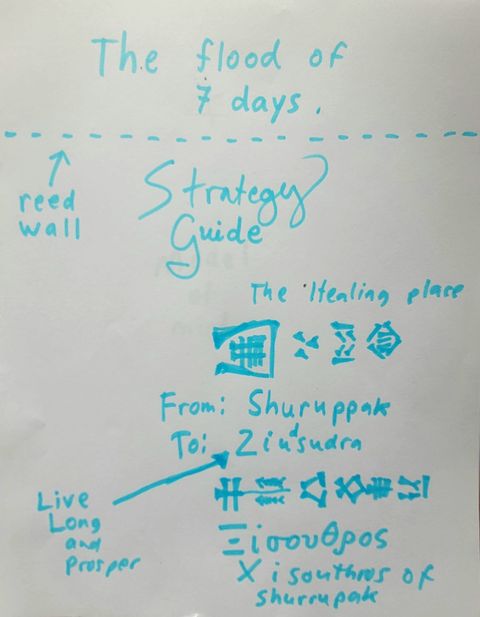 The flood of
7 days.
reed
wall
Strategy
Guide
The Healing place
𒋢𒆳𒊒𒆠
From: Shuruppak
To: Ziuᵈsudra
Live
Long
and
Prosper
Ξίσουθρος
Xisouthros of
shurrupak